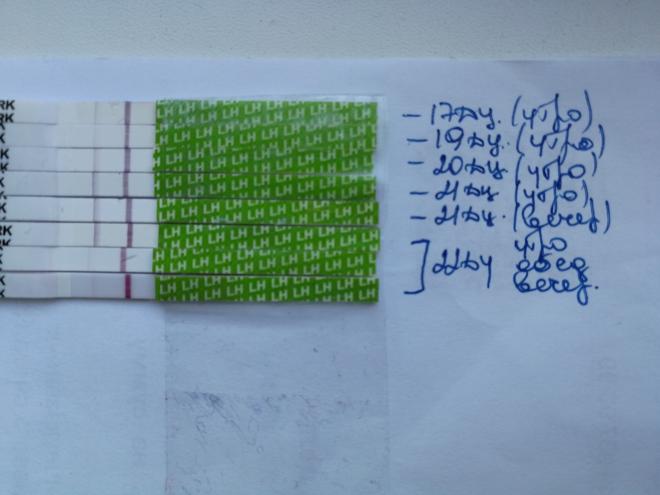 RK
RK
K
K
K
K
RK
K
K
LH LH LH LH LH LH LH LH
- 17 ДЦ. (утро)
- 19 ДЦ. (утро)
- 20 ДЦ (утро)
- 21 ДЦ (утро)
- 21 ДЦ. (вечер)
] 22 ДЦ утро
обед
вечер.